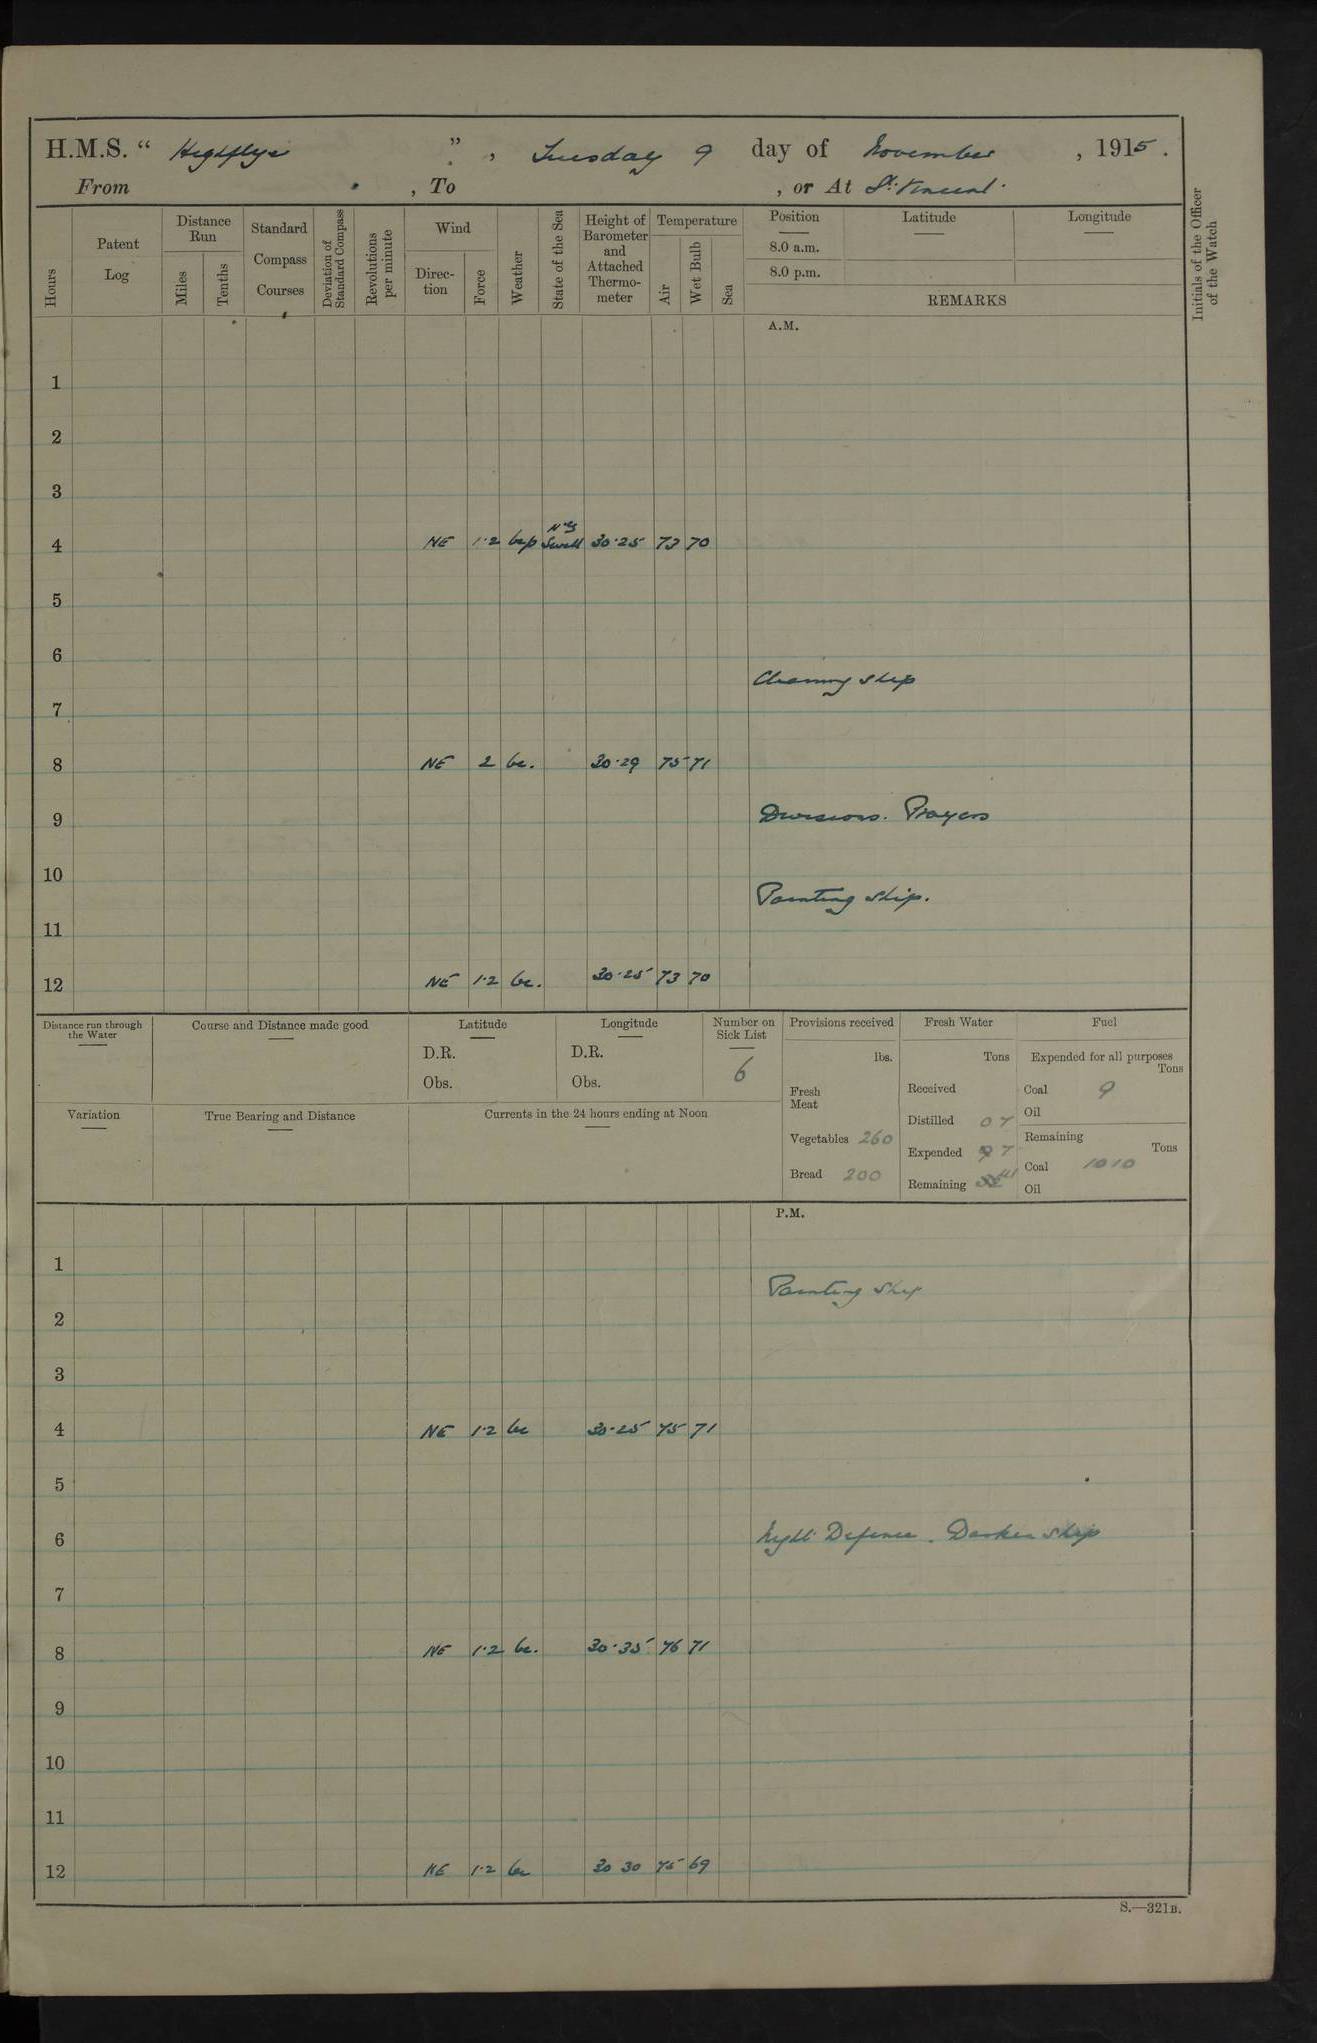 H.M.S. “ Highflyer ” , Tuesday 9 day of November , 1915 .
From , To , or At St. Vincent.
Hours
Patent Log
Distance Run
Miles
Tenths
Standard Compass Courses
Deviation of Standard Compass
Revolutions per minute
Wind
Direction
Force
Weather
State of the Sea
Height of Barometer and Attached Thermometer
Temperature
Air
Wet Bulb
Sea
Position Latitude Longitude
8.0 a.m.
8.0 p.m.
REMARKS
Initials of the Officer of the Watch
A.M.
1
2
3
4 NE 1·2 bcp Nly Swell 30·25 73 70
5
6
Cleaning ship
7
8 NE 2 bc. 30·29 75 71
9 Divisions. Prayers
10
Painting ship.
11
12 NE 1·2 bc. 30·25 73 70
Distance run through the Water
Course and Distance made good
Latitude
D.R.
Obs.
Longitude
D.R.
Obs.
Number on Sick List
6
Variation
True Bearing and Distance
Currents in the 24 hours ending at Noon
Provisions received
lbs.
Fresh Meat
Vegetables 260
Bread 200
Fresh Water
Tons
Received
Distilled 07
Expended 7
Remaining
Fuel
Expended for all purposes
Tons
Coal 9
Oil
Remaining
Tons
Coal 1010
Oil
P.M.
1
Painting Ship
2
3
4 NE 1·2 bc 30·25 75 71
5
6 Night Defence. Darken ship
7
8 NE 1·2 bc. 30·35 76 71
9
10
11
12 NE 1·2 bc 30 30 75 69
S.—321B.